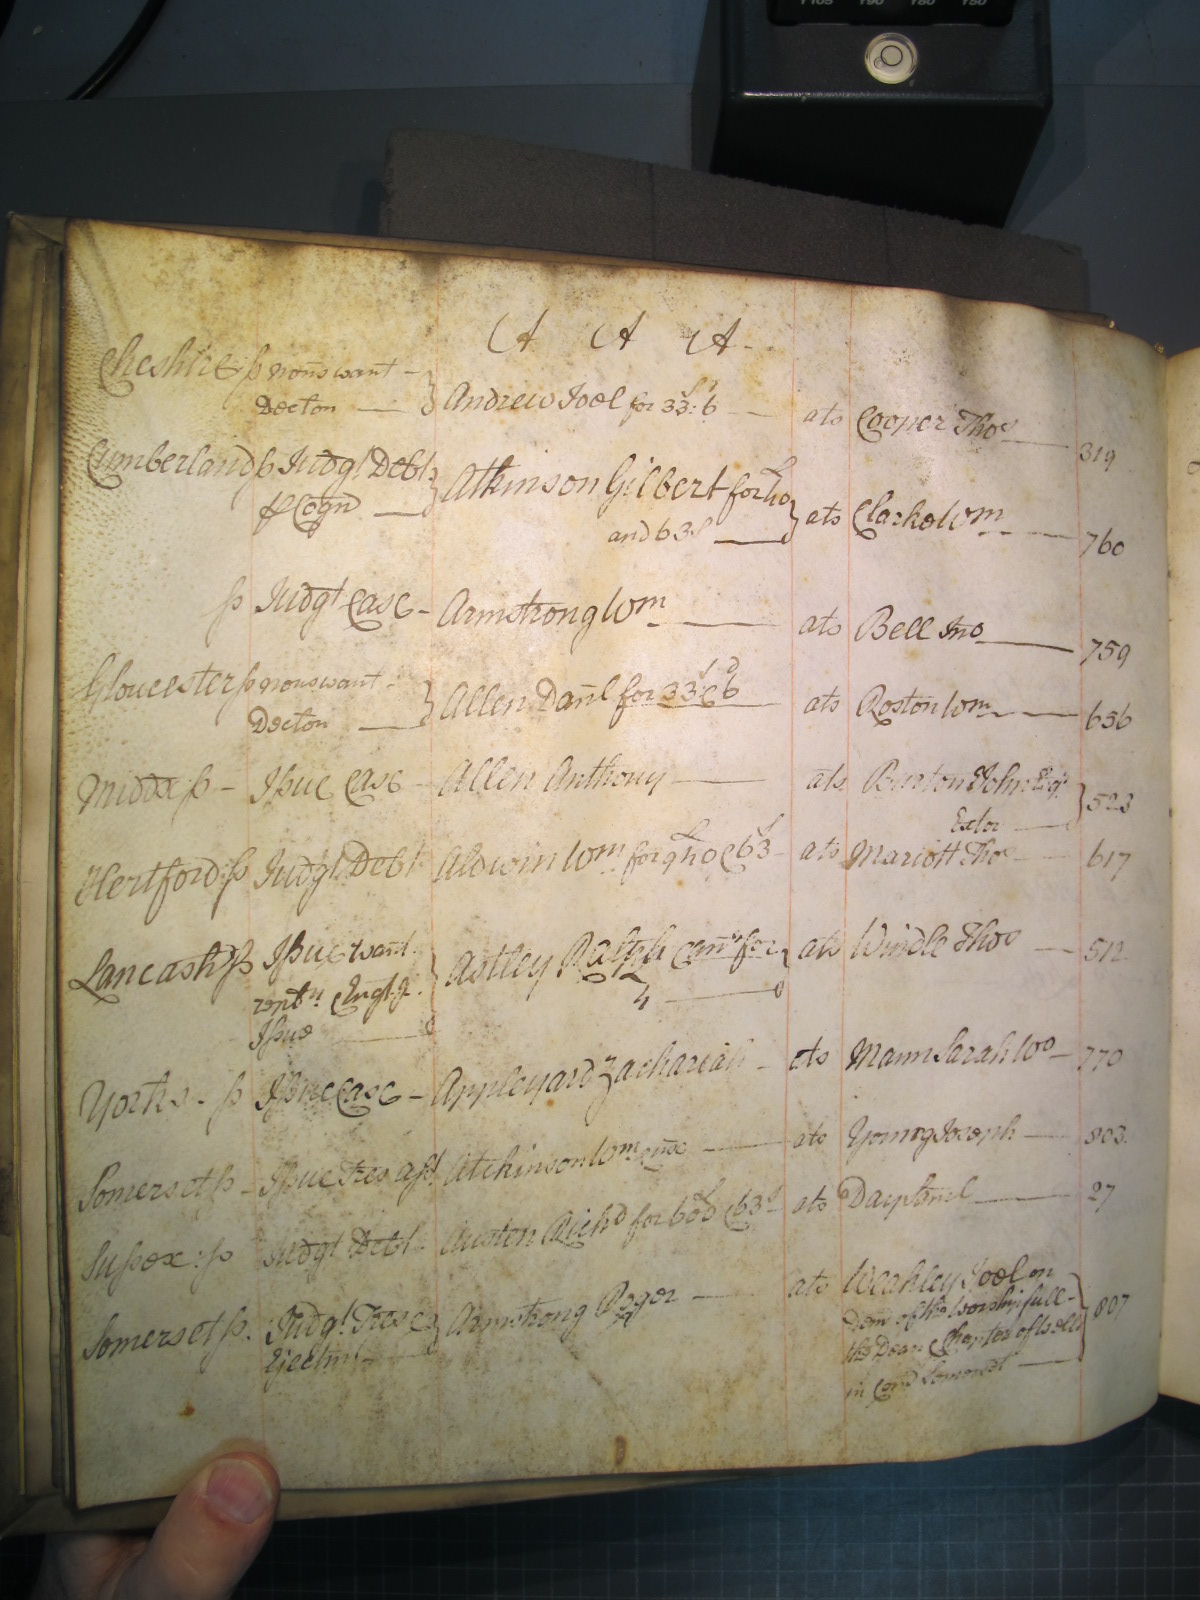 Y105 Y90 Y80 Y50
A A A.
Cheshire ss nons want
Decton Andrew Joel for 33s: 6d ats Cooper Thos 319
Cumberland ss Judgt Debt Atkinson Gilbert for
& Cogn and 63s ats Clarke Wm 760
ss Judgt Case - Armstrong Wm ats Bell Jno 759
Gloucester ss nons want
Decton Allen Danl for 33s & 6d ats Roston Wm 656
Middx ss - Issue Case - Allen Anthony ats Burton John Esqr
Extor 523
Hertford: ss Judgt Debt Aldwin Wm for & 63s ats Mariott Thos 617
Lancashr ss Issue want
Astley Ralph for ats Windle Thos 512
Issue 4
Yorks - ss Issue Case - Appleyard Zachariah - ats Mann Sarah Wo 770
Somerset ss - Issue Tres asst Atchinson Wm ats Young Joseph 803
Sussex: ss Judgt Debt Austen Richd for & 63s ats Day Saml 27
Somerset ss. Judgt. Tres & Armstrong Roger ats Weakley Joel on
Ejectmt dem of the Worshipfull
the Dean & Chapter of Wells 807
in Somerset